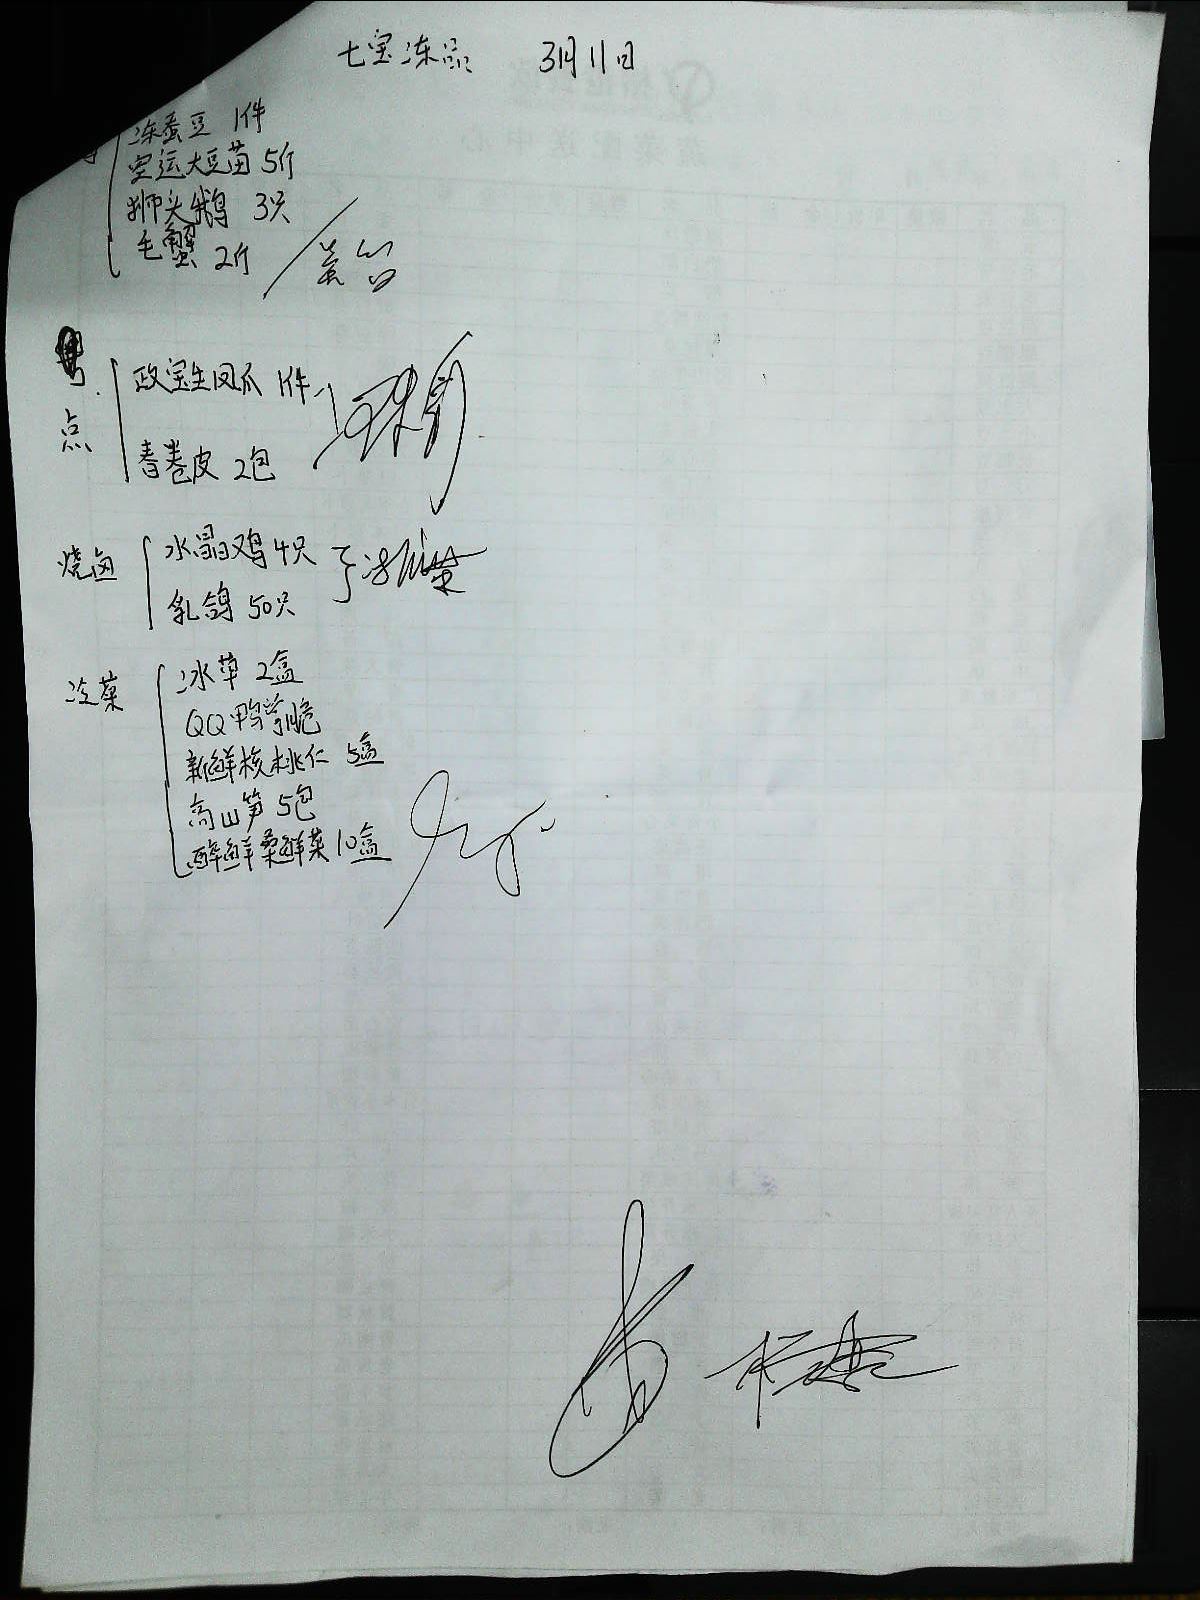 七宝冻品 3月11日
冻蚕豆 1件
空运大豆苗 5斤
狮头鹅 3只
毛蟹 2斤
粤点
政宝生凤爪 1件
春卷皮 2包
烧卤
水晶鸡 4只
乳鸽 50只
冷菜
冰草 2盒
QQ鸭掌脆
新鲜核桃仁 5盒
高山笋 5包
醉鲜桑鲜菜 10盒